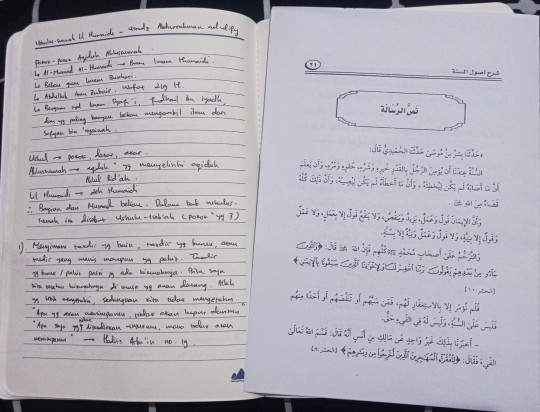 Ushulus-sunnah lil Humaidi - Ustadz Abdurrahman
Pokok-pokok Aqidah Ahlussunnah
↳ Al-Musnad Al-Humaidi → Imam Humaidi
↳ Beliau guru Imam Bukhari.
↳ Abdullah bin Zubair. Wafat 219 H.
Sufyan bin 'uyainah.
Ushul → pokok, dasar, akar.
Ahlussunnah → aqidah² yg menyelisihi aqidah
Ahlul Bid'ah.
Lil Humaidi → oleh Humaidi
∴ Bagian dari Musnad beliau. Dalam bab ushulus-
sunnah
1) Mengimani takdir yg baik, takdir yg buruk, akan
takdir yang manis maupun yg pahit. Takdir
yg buruk / pahit pasti ya ada hikmahnya. Bisa saja
kita hikmahnya di masa yg akan datang. Allah
yg lebih mengetahui, sedangkan kita tidak mengetahui.
"Apa yg akan menimpamu, tidak akan luput darimu"
menimpamu" → Hadits Arba'in no. 19
٢٦
شرح أصول السنة
نَصُّ الرِّسَالَة
حَدَّثَنَا بِشْرُ بْنُ مُوسَى حَدَّثَنَا الحُمَيْدِيُّ قَالَ:
السُّنَّةُ عِنْدَنَا أَنْ يُؤْمِنَ الرَّجُلُ بِالقَدَرِ خَيْرِهِ وَشَرِّهِ، حُلْوِهِ وَمُرِّهِ، وَأَنْ يَعْلَمَ
أَنَّ مَا أَصَابَهُ لَمْ يَكُنْ لِيُخْطِئَهُ، وَأَنَّ مَا أَخْطَأَهُ لَمْ يَكُنْ لِيُصِيبَهُ، وَأَنَّ ذَلِكَ كُلَّهُ
قَضَاءٌ مِنَ اللهِ
وَأَنَّ الإِيمَانَ قَوْلٌ وَعَمَلٌ، يَزِيدُ وَيَنْقُصُ، وَلَا يَنْفَعُ قَوْلٌ إِلَّا بِعَمَلٍ، وَلَا عَمَلٌ
وَقَوْلٌ إِلَّا بِنِيَّةٍ، وَلَا قَوْلٌ وَعَمَلٌ وَنِيَّةٌ إِلَّا بِسُنَّةٍ.
وَالتَّرَحُّمُ عَلَى أَصْحَابِ مُحَمَّدٍ ﷺ كُلِّهِمْ فَإِنَّ اللهَ قَالَ: ﴿وَالَّذِينَ
جَاءُو مِنْ بَعْدِهِمْ يَقُولُونَ رَبَّنَا اغْفِرْ لَنَا وَلِإِخْوَانِنَا الَّذِينَ سَبَقُونَا بِالْإِيمَانِ﴾
[الحشر: ١٠]
فَلَمْ نُؤْمَرْ إِلَّا بِالاسْتِغْفَارِ لَهُمْ، فَمَنْ سَبَّهُمْ أَوْ تَنَقَّصَهُمْ أَوْ أَحَدًا مِنْهُمْ
فَلَيْسَ عَلَى السُّنَّةِ، وَلَيْسَ لَهُ فِي الفَيْءِ حَقٌّ.
- أَخْبَرَنَا بِذَلِكَ غَيْرُ وَاحِدٍ عَنْ مَالِكِ بْنِ أَنَسٍ أَنَّهُ قَالَ: قَسَمَ اللهُ تَعَالَى
الفَيْءَ فَقَالَ: ﴿لِلْفُقَرَاءِ الْمُهَاجِرِينَ الَّذِينَ أُخْرِجُوا مِنْ دِيَارِهِمْ﴾ [الحشر: ٨]